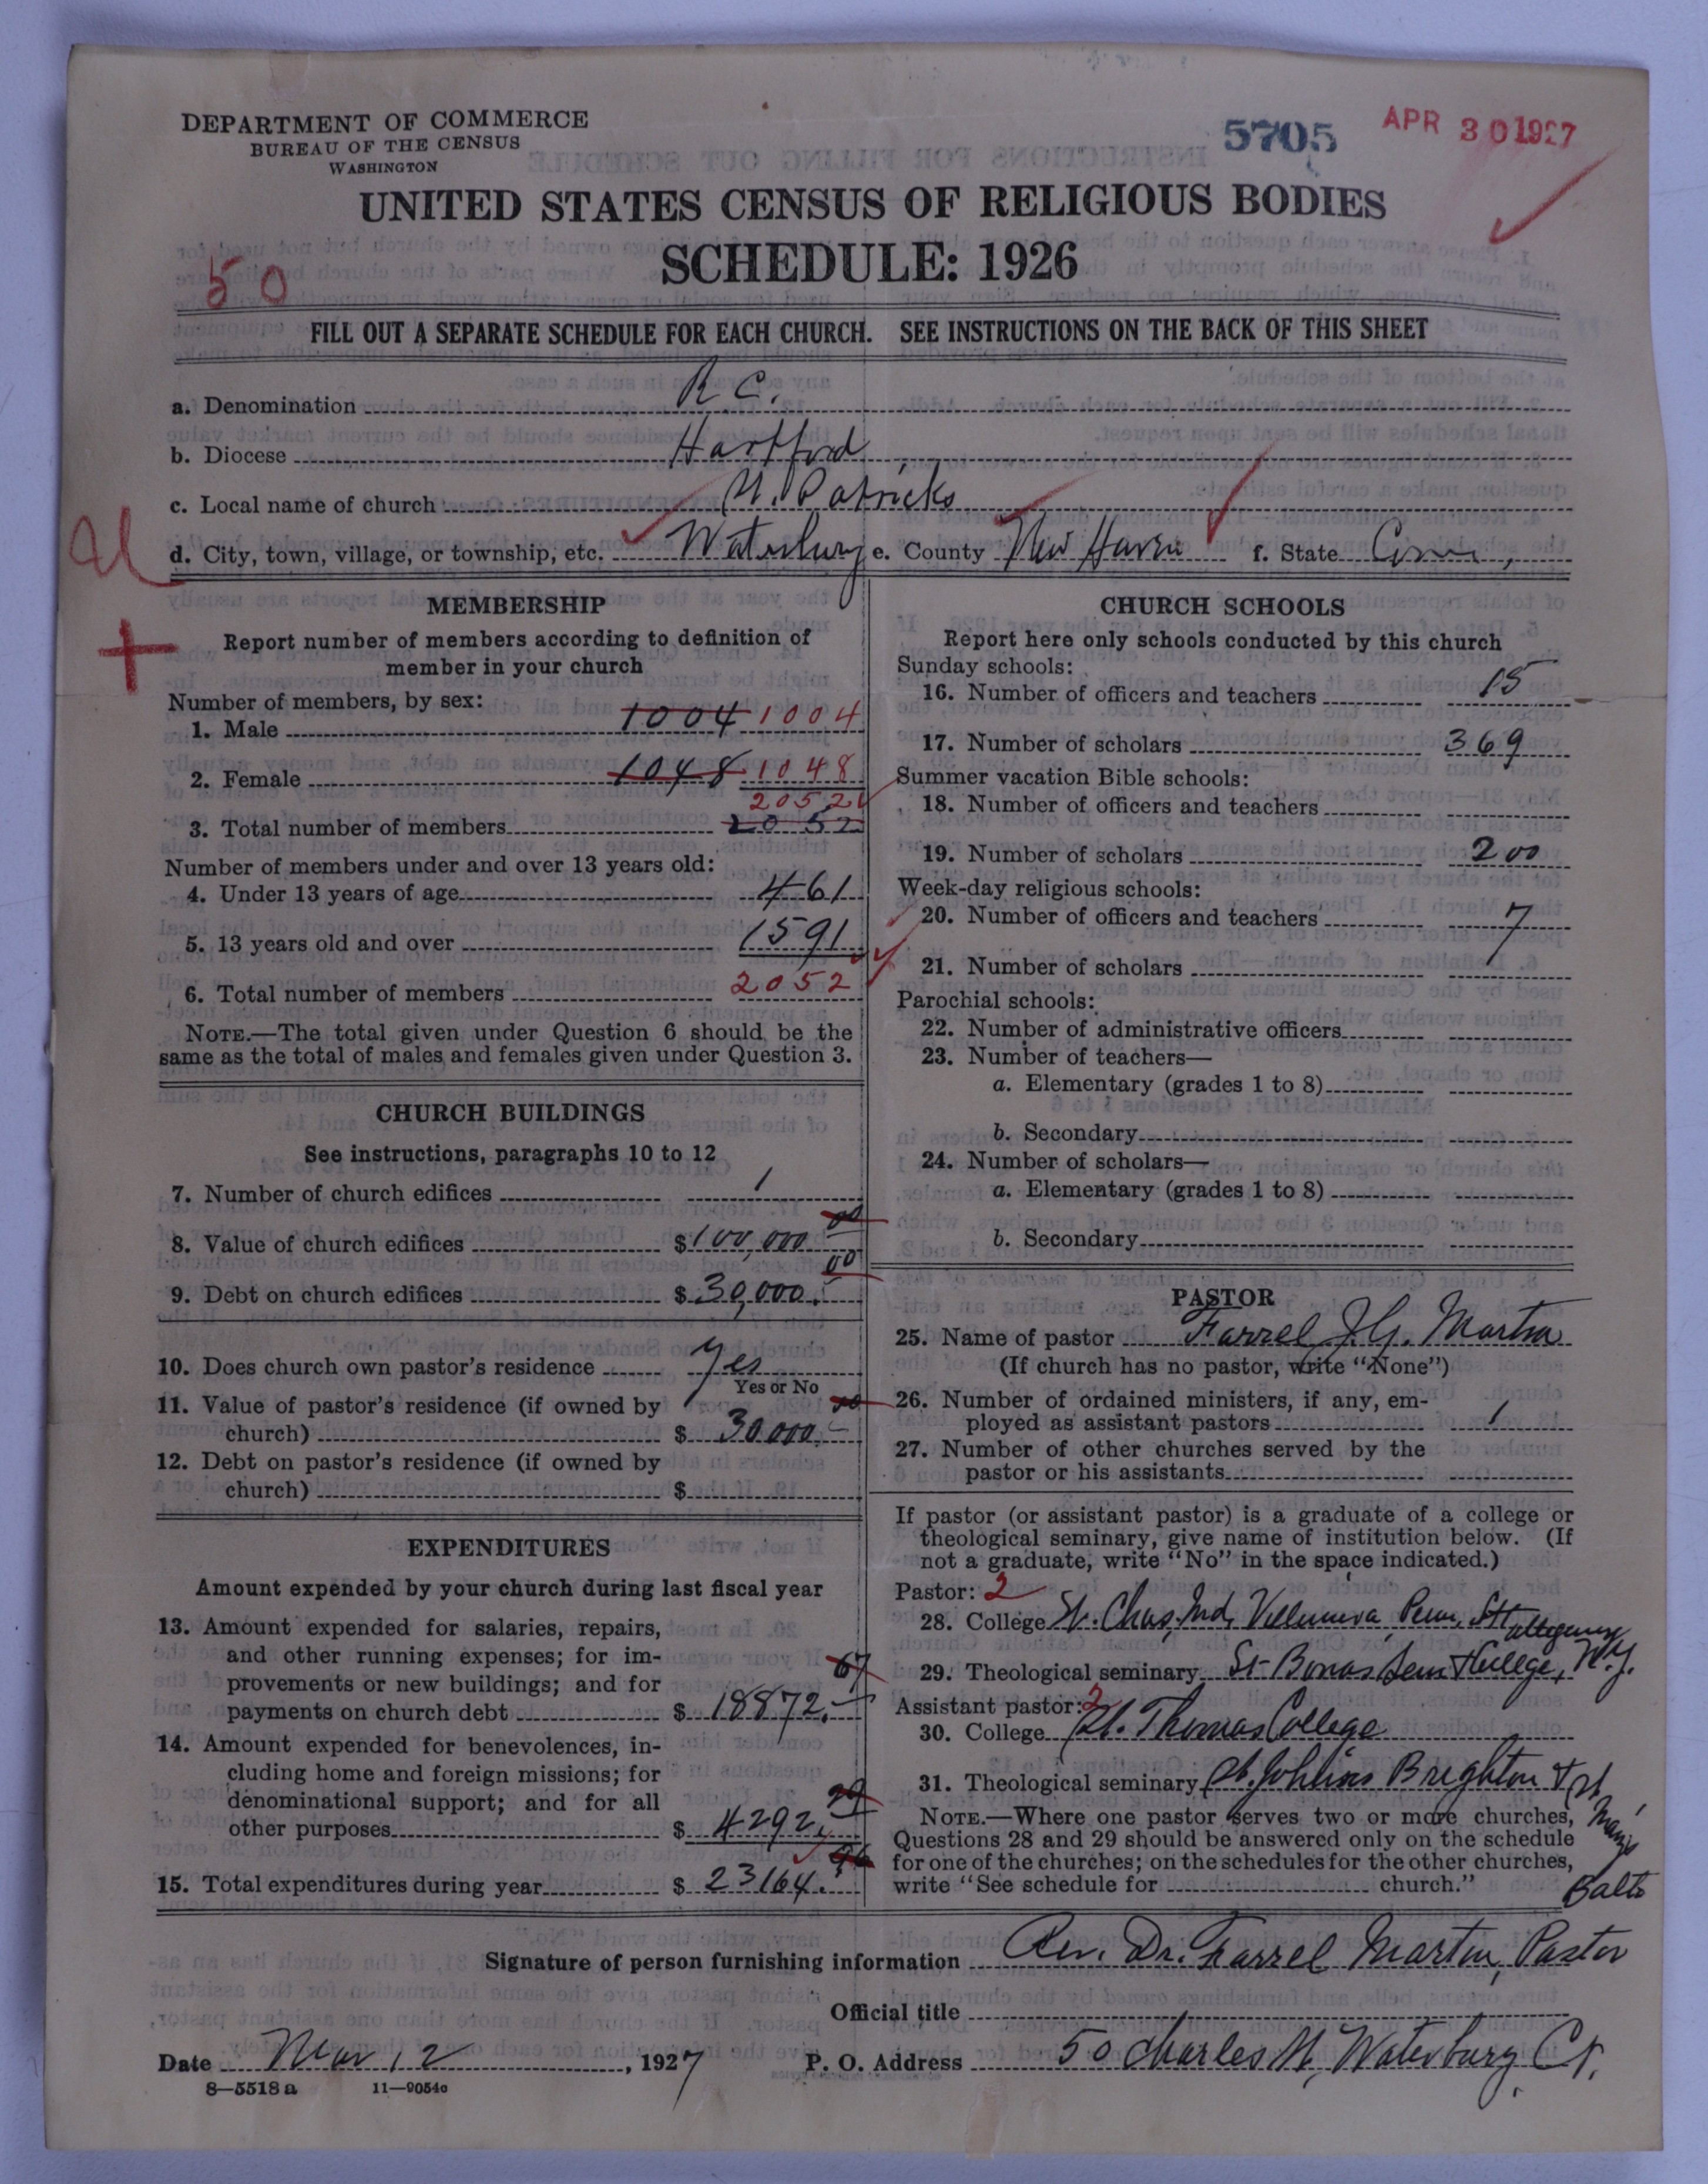 DEPARTMENT OF COMMERCE
BUREAU OF THE CENSUS
WASHINGTON
5705
APR 30 1927
UNITED STATES CENSUS OF RELIGIOUS BODIES
SCHEDULE: 1926
50
FILL OUT A SEPARATE SCHEDULE FOR EACH CHURCH. SEE INSTRUCTIONS ON THE BACK OF THIS SHEET
a. Denomination R C.
b. Diocese Hartford
c. Local name of church St. Patricks
d. City, town, village, or township, etc. Waterbury e. County New Haven f. State Conn,
MEMBERSHIP
Report number of members according to definition of
member in your church
Number of members, by sex:
1. Male 1004 1004
2. Female 1048 1048
2052
3. Total number of members 2052
Number of members under and over 13 years old:
4. Under 13 years of age 461
5. 13 years old and over 1591
6. Total number of members 2052
NOTE.—The total given under Question 6 should be the
same as the total of males and females given under Question 3.
CHURCH BUILDINGS
See instructions, paragraphs 10 to 12
7. Number of church edifices 1
8. Value of church edifices $ 100,000 00
9. Debt on church edifices $ 30,000. 00
10. Does church own pastor's residence Yes
Yes or No
11. Value of pastor's residence (if owned by
church) $ 30000. 00
12. Debt on pastor's residence (if owned by
church) $
EXPENDITURES
Amount expended by your church during last fiscal year
13. Amount expended for salaries, repairs,
and other running expenses; for im-
provements or new buildings; and for
payments on church debt $ 18872. 67
14. Amount expended for benevolences, in-
cluding home and foreign missions; for
denominational support; and for all
other purposes $ 4292. 29
15. Total expenditures during year $ 23164. 96
CHURCH SCHOOLS
Report here only schools conducted by this church
Sunday schools:
16. Number of officers and teachers 15
17. Number of scholars 369
Summer vacation Bible schools:
18. Number of officers and teachers
19. Number of scholars 200
Week-day religious schools:
20. Number of officers and teachers 7
21. Number of scholars
Parochial schools:
22. Number of administrative officers
23. Number of teachers—
a. Elementary (grades 1 to 8)
b. Secondary
24. Number of scholars—
a. Elementary (grades 1 to 8)
b. Secondary
PASTOR
25. Name of pastor Farrel J.G. Martin
(If church has no pastor, write "None")
26. Number of ordained ministers, if any, em-
ployed as assistant pastors 1
27. Number of other churches served by the
pastor or his assistants
If pastor (or assistant pastor) is a graduate of a college or
theological seminary, give name of institution below. (If
not a graduate, write "No" in the space indicated.)
Pastor: 2
28. College St. Chas. Md, Villanova, Penn,
29. Theological seminary St Bonas Sem & College, Allegany N.Y.
Assistant pastor: 2
30. College St. Thomas College
31. Theological seminary St. Johns Brighton & St Marys Balto
NOTE.—Where one pastor serves two or more churches,
Questions 28 and 29 should be answered only on the schedule
for one of the churches; on the schedules for the other churches,
write "See schedule for church."
Signature of person furnishing information Rev. Dr. Farrel Martin, Pastor
Official title
Date Mar 12, 1927 P. O. Address 50 Charles St, Waterbury, Ct.
8—5518 a 11—9054a